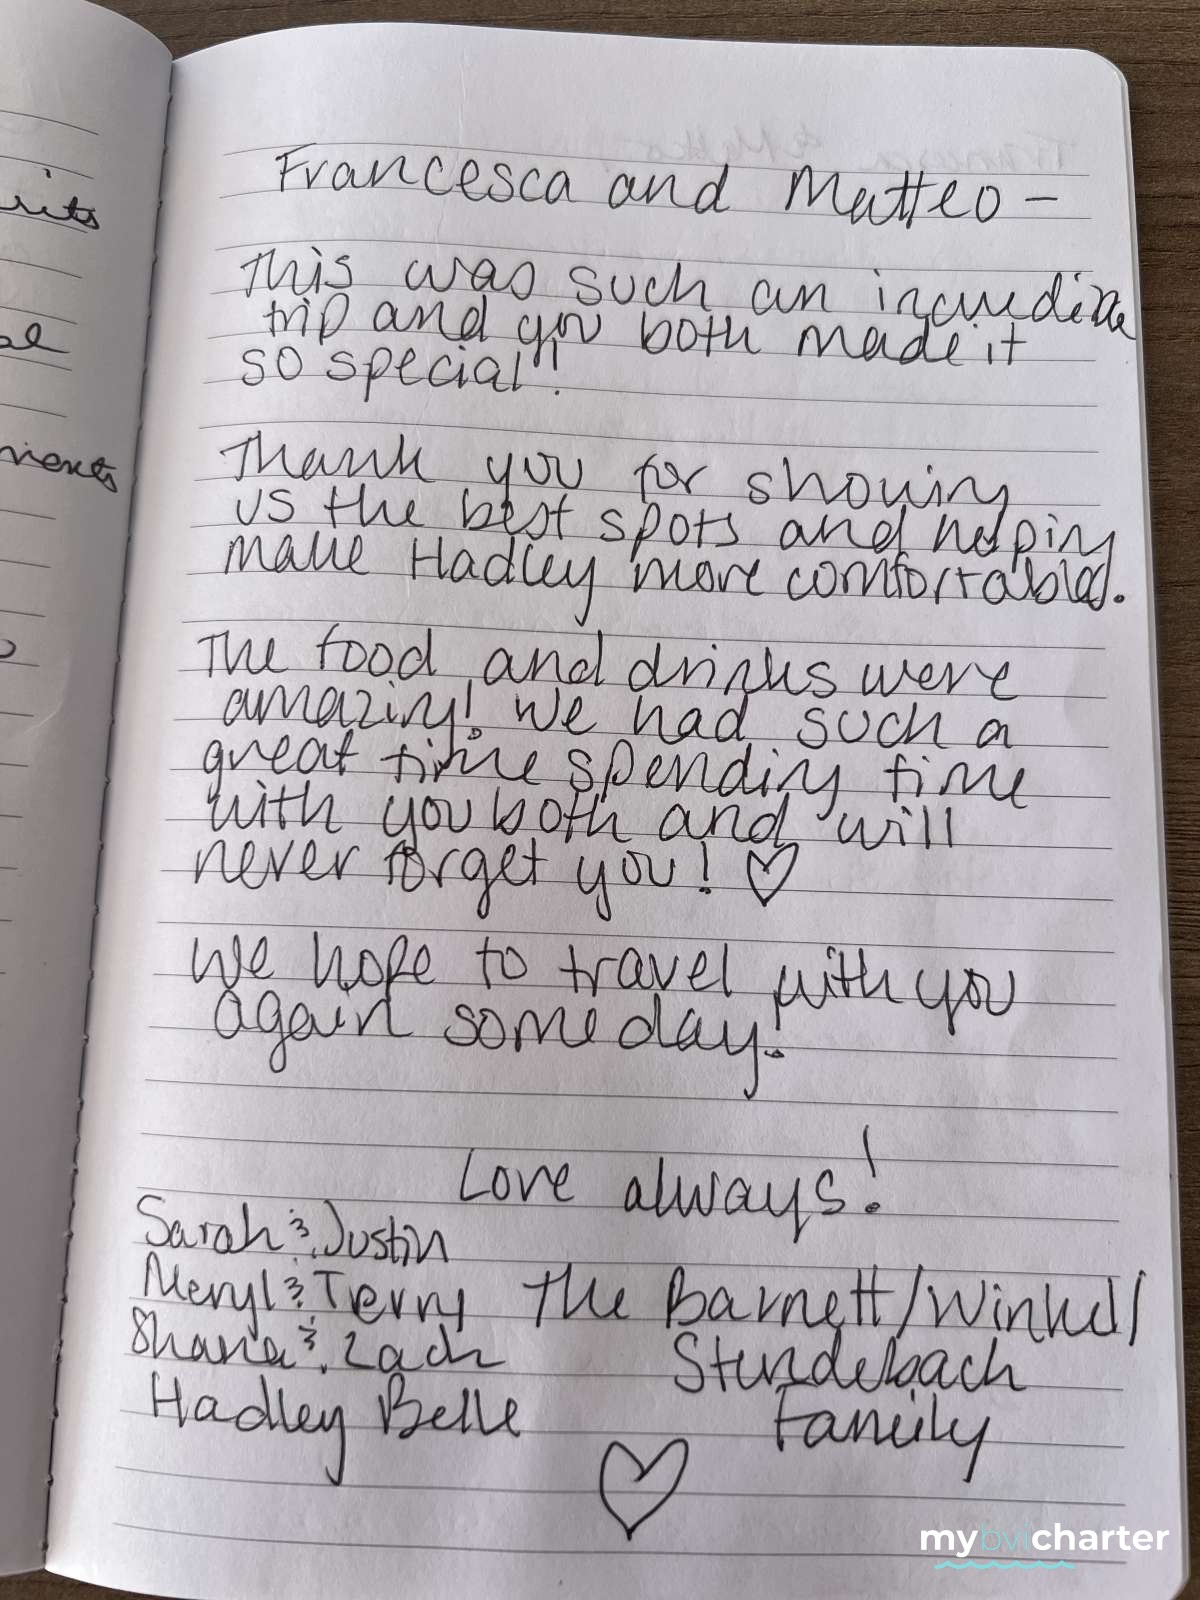 Francesca and Matteo -
This was such an incredible
trip and you both made it
so special!!
Thank you for showing
us the best spots and helping
make Hadley more comfortable.
The food and drinks were
amazing! We had such a
great time spending time
with you both and will
never forget you! ♡
We hope to travel with you
again someday!
Love always!
Sarah & Justin
Meryl & Terry The Barnett/Winkel/
Shana & Zach Stundebach
Hadley Belle Family
♡
mybvicharter